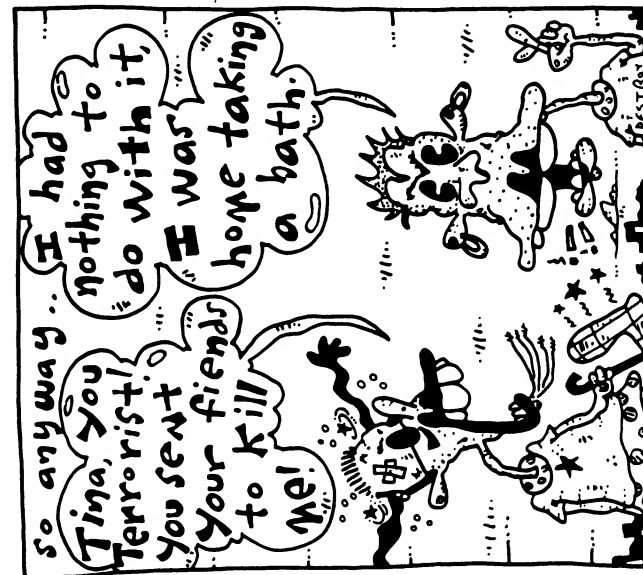 so anyway..
Tina, you
Terrorist!
you sent
your fiends
to kill
me!
I had
nothing to
do with it,
I was
home taking
a bath.
!!!